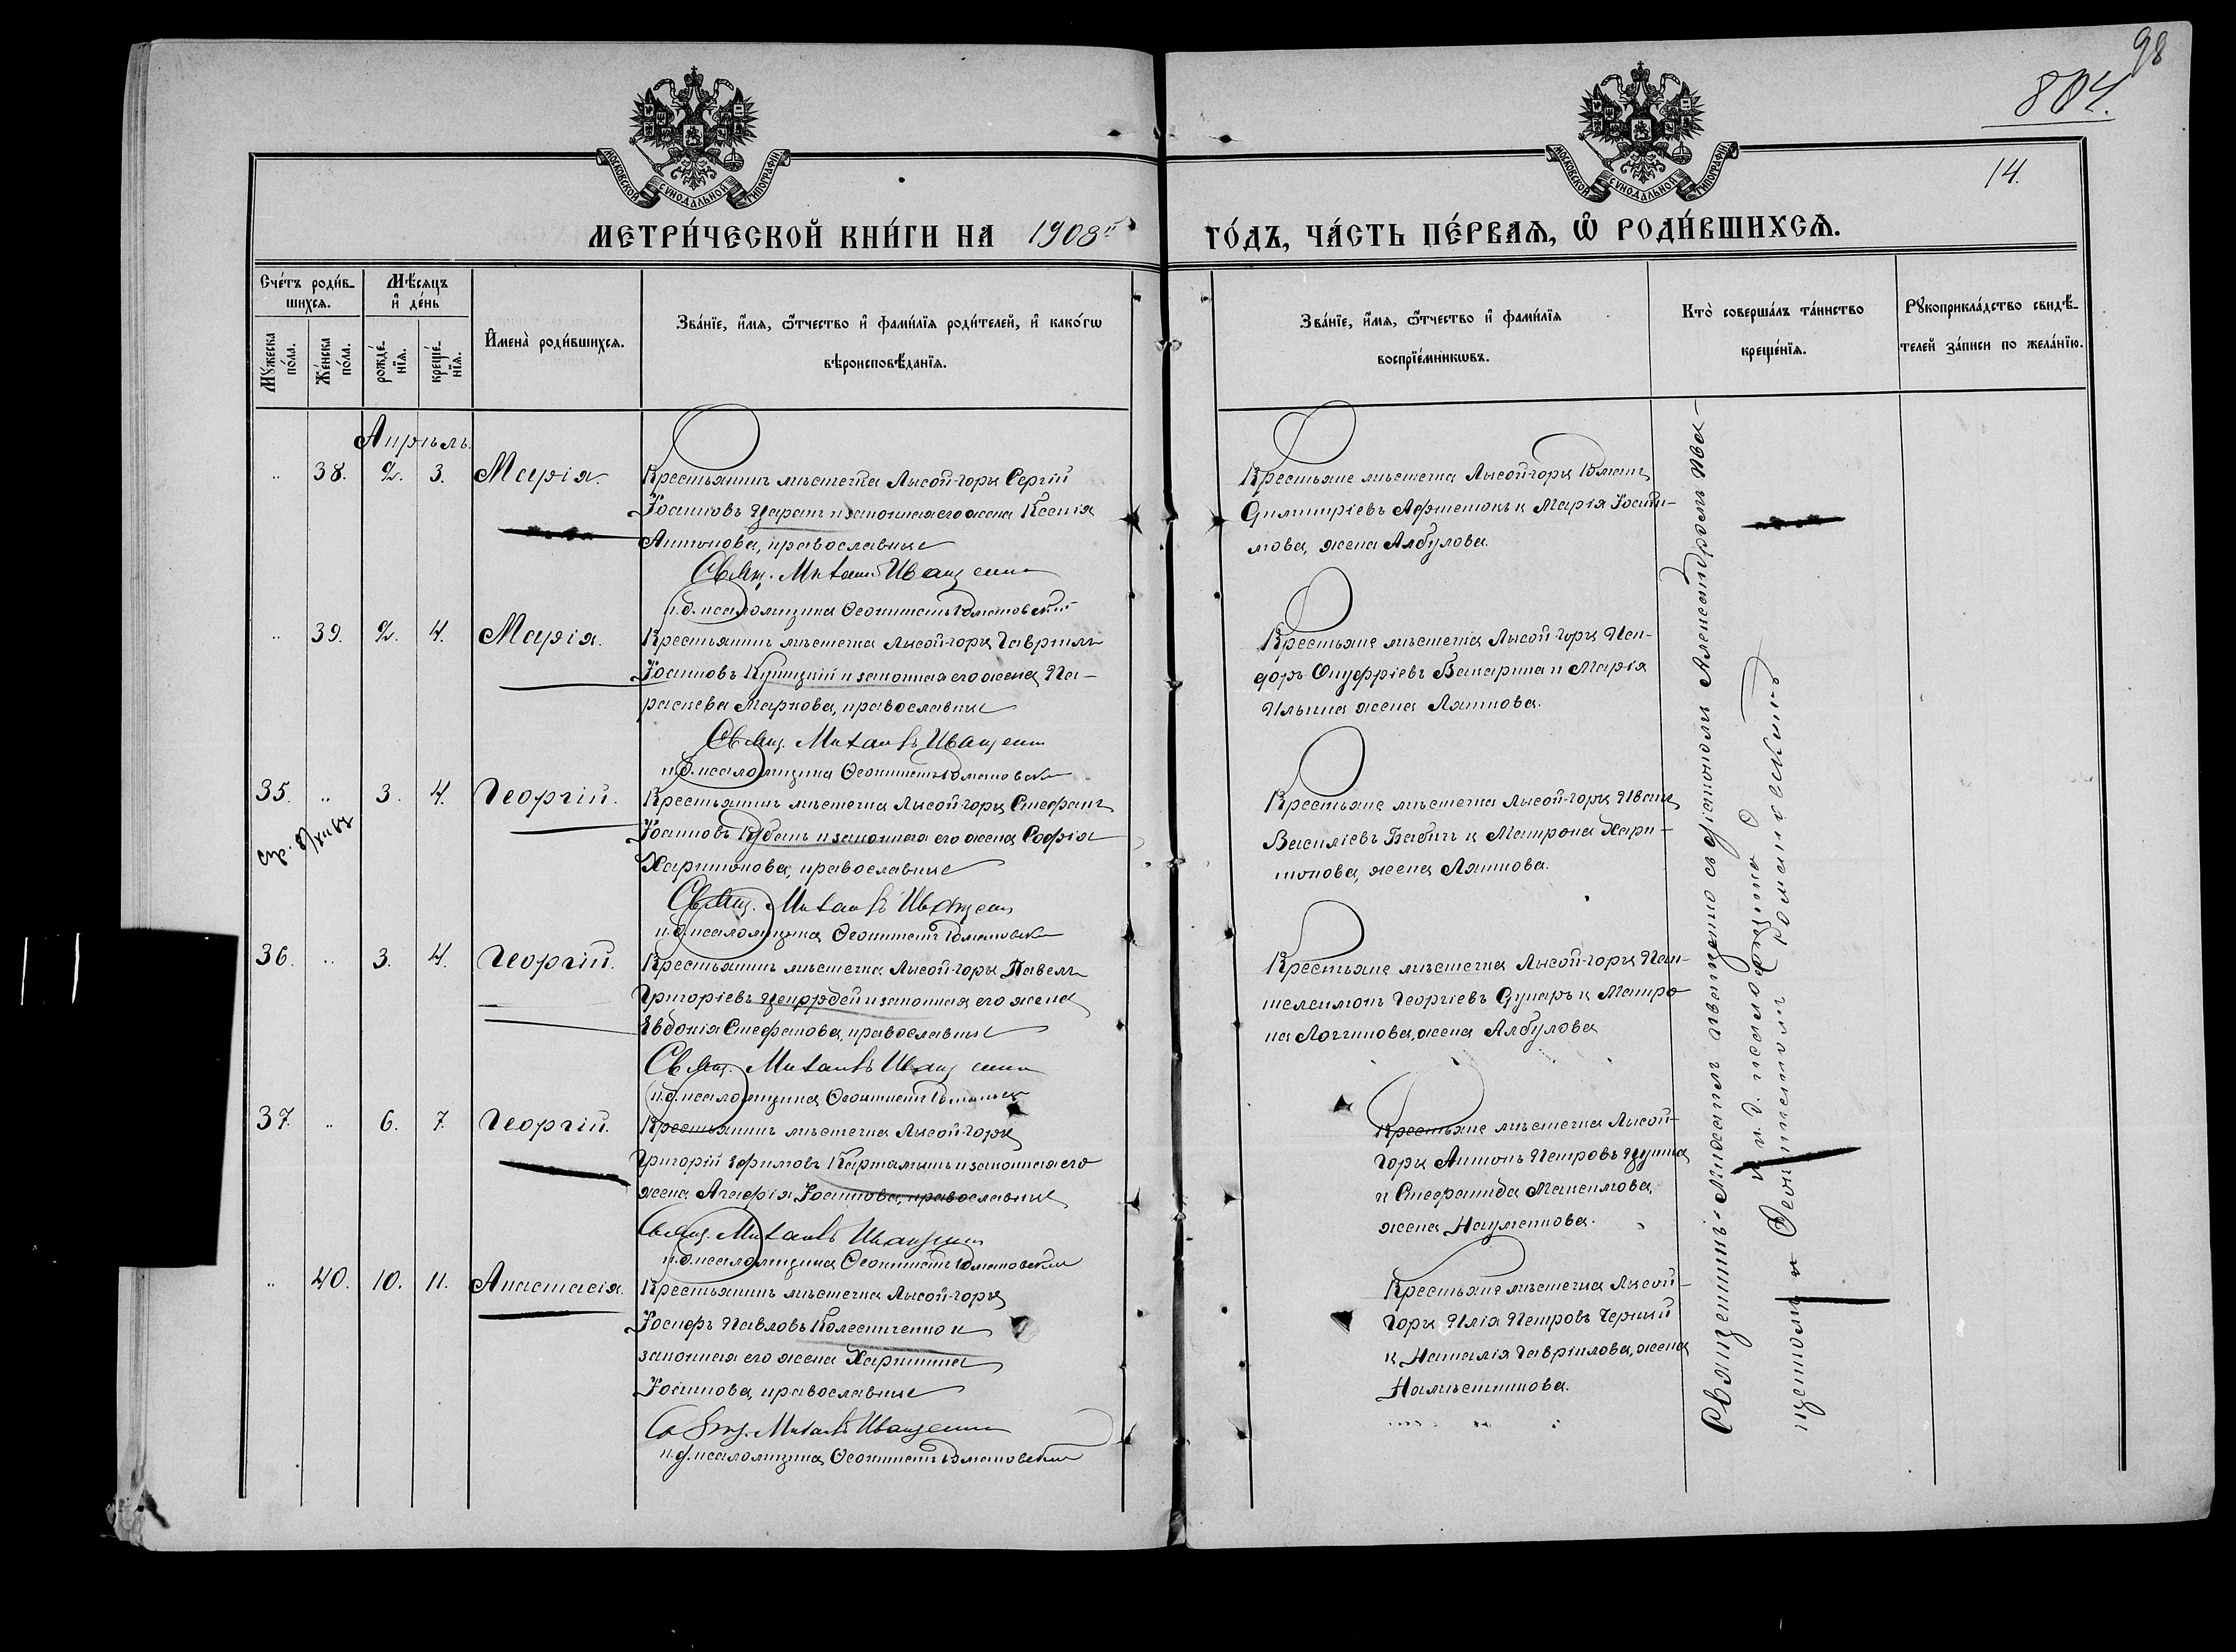 98
804.
14.
МОСКОВСКОЙ СУНОДАЛЬНОЙ ТИПОГРАФІИ
МОСКОВСКОЙ СУНОДАЛЬНОЙ ТИПОГРАФІИ
МЕТРИ́ЧЕСКОЙ КНИ́ГИ НА 1908й ГО́ДЪ, ЧА́СТЬ ПЕ́РВАѦ, Ѡ҆ РОДИ́ВШИХСѦ.
Сче́тъ роди́в-
шихсѧ.
Мꙋ́жеска по́ла.
Же́нска по́ла.
Мѣ́сѧцъ
и҆ де́нь
рожде́-
нїѧ.
креще́-
нїѧ.
И҆мена̀ роди́вшихсѧ.
Зва́нїе, и҆́мѧ, ѻ҆́тчество и҆ фами́лїѧ роди́телей, и҆ како́гѡ
вѣроисповѣ́данїѧ.
Зва́нїе, и҆́мѧ, ѻ҆́тчество и҆ фами́лїѧ
воспрїе́мникѡвъ.
Кто̀ соверша́лъ та́инство
креще́нїѧ.
Рꙋкоприкла́дство свидѣ́-
телей за́писи по жела́нїю.
Апрѣль.
38. 2. 3. Марія.
Крестьянинъ мѣстечка Лысой-горы Сергій
Іоанновъ Царанъ и законная его жена Ксенія
Антонова, православные
Свящ. Михаилъ Иващенко
и.д. псаломщика Ѳеоктистъ Романовскій
Крестьяне мѣстечка Лысой-горы Романъ
Димитріевъ и Марія Іоаки-
мова, жена Албулова.
39. 2. 4. Марія.
Крестьянинъ мѣстечка Лысой-горы Гавріилъ
Іоанновъ Куницкій и законная его жена Па-
раскева Маркова, православные
Свящ. Михаилъ Иващенко
и.д. псаломщика Ѳеоктистъ Романовскій
Крестьяне мѣстечка Лысой-горы Иси-
доръ Онуфріевъ Бакарина и Марія
Ильина жена Ляшкова.
35. 3. 4. Георгій.
Крестьянинъ мѣстечка Лысой-горы Стефанъ
Іоанновъ Кубанъ и законная его жена Софія
Харитонова, православные
Свящ. Михаилъ Иващенко
и.д. псаломщика Ѳеоктистъ Романовскій
Крестьяне мѣстечка Лысой-горы Иванъ
Василіевъ Бабичъ и Матрона Хари-
тонова, жена Ляшкова.
36. 3. 4. Георгій.
Крестьянинъ мѣстечка Лысой-горы Павелъ
Григоріевъ и законная его жена
Евдокія Стефанова, православные
Свящ. Михаилъ Иващенко
и.д. псаломщика Ѳеоктистъ Романовскій
Крестьяне мѣстечка Лысой-горы Пан-
телеимонъ Георгіевъ Дунаръ и Матро
на Логгинова, жена Албулова
37. 6. 7. Георгій.
Крестьянинъ мѣстечка Лысой-горы
Григорій Ефимовъ Карталышъ и законная его
жена Агафія Іоаннова, православные
Свящ. Михаилъ Иващенко
и.д. псаломщика Ѳеоктистъ Романовскій
Крестьяне мѣстечка Лысой-
горы Антонъ Петровъ
и Стефанида Максимова,
жена Науменкова.
40. 10. 11. Анастасія.
Крестьянинъ мѣстечка Лысой-горы
Іосифъ Павловъ Колесниченко и
законная его жена Харитина
Іоаннова, православные
Свящ. Михаилъ Иващенко
и.д. псаломщика Ѳеоктистъ Романовскій
Крестьяне мѣстечка Лысой-
горы Илія Петровъ Черный
и Наталія Гавріилова, жена
Намѣстникова.
Священникъ Михаилъ Иващенко съ діакономъ Александромъ Ива-
щенкомъ и Ѳеоктистомъ Романовскимъ
и и.д. псаломщика